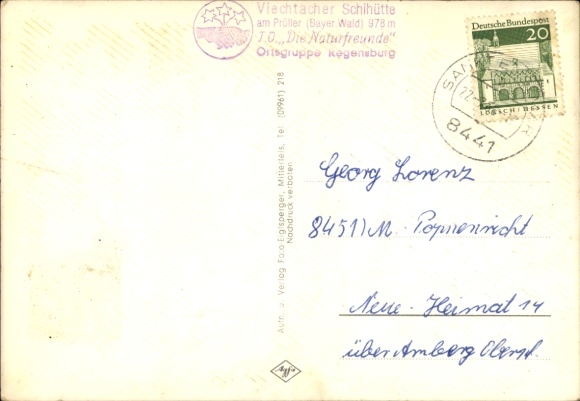 Viechtacher Schihütte
am Prüller (Bayer Wald) 978 m
T.O. „Die Naturfreunde"
Ortsgruppe Regensburg
Deutsche Bundespost
20
LORSCH / HESSEN
8441
Georg Lorenz
8451) M. Poppenricht
Neue-Heimat 14
über Amberg Oberpf.
Aufn. u. Verlag Foto-Eiglsperger, Mitterfels, Tel. (09961) 218
Nachdruck verboten
Agfa